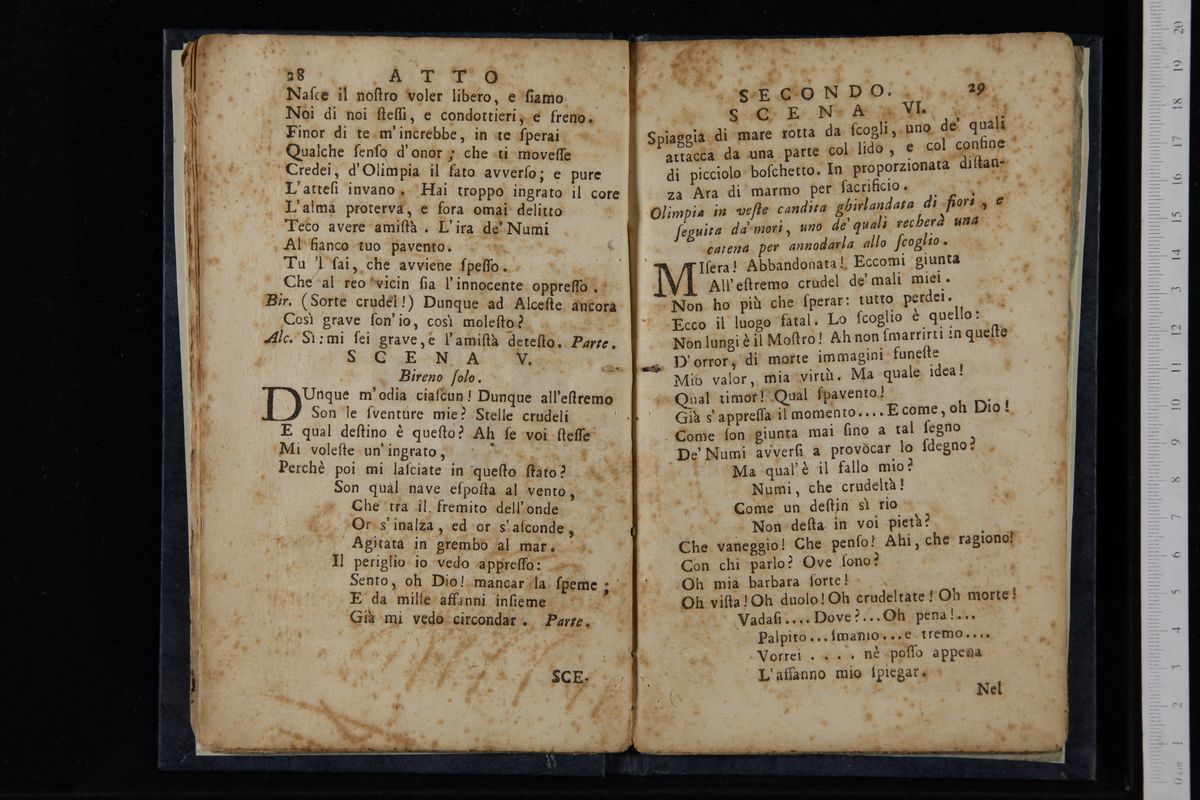 28 ATTO
Naſce il noſtro voler libero, e ſiamo
Noi di noi ſteſſi, e condottieri, e freno.
Finor di te m'increbbe, in te ſperai
Qualche ſenſo d'onor; che ti moveſſe
Credei, d'Olimpia il fato avverſo; e pure
L'atteſi invano. Hai troppo ingrato il core
L'alma proterva, e fora omai delitto
Teco avere amiſtà. L'ira de' Numi
Al fianco tuo pavento.
Tu 'l ſai, che avviene ſpeſſo.
Che al reo vicin ſia l'innocente oppreſſo.
Bir. (Sorte crudel!) Dunque ad Alceſte ancora
Così grave ſon'io, così moleſto?
Alc. Sì: mi ſei grave, e l'amiſtà deteſto. Parte.
SCENA V.
Bireno ſolo.
DUnque m'odia ciaſcun! Dunque all'eſtremo
Son le ſventure mie? Stelle crudeli
E qual deſtino è queſto? Ah ſe voi ſteſſe
Mi voleſte un'ingrato,
Perchè poi mi laſciate in queſto ſtato?
Son qual nave eſpoſta al vento,
Che tra il fremito dell'onde
Or s'inalza, ed or s'aſconde,
Agitata in grembo al mar.
Il periglio io vedo appreſſo:
Sento, oh Dio! mancar la ſpeme;
E da mille affanni inſieme
Già mi vedo circondar. Parte.
SCE-
SECONDO. 29
SCENA VI.
Spiaggia di mare rotta da ſcogli, uno de' quali
attacca da una parte col lido, e col confine
di picciolo boſchetto. In proporzionata diſtan-
za Ara di marmo per ſacrificio.
Olimpia in veſte candita ghirlandata di fiori, e
ſeguita da' mori, uno de' quali recherà una
catena per annodarla allo ſcoglio.
MIſera! Abbandonata! Eccomi giunta
All'eſtremo crudel de' mali miei.
Non ho più che ſperar: tutto perdei.
Ecco il luogo fatal. Lo ſcoglio è quello:
Non lungi è il Moſtro! Ah non ſmarrirti in queſte
D'orror, di morte immagini funeſte
Mio valor, mia virtù. Ma quale idea!
Qual timor! Qual ſpavento!
Già s'appreſſa il momento.... E come, oh Dio!
Come ſon giunta mai ſino a tal ſegno
De' Numi avverſi a provocar lo ſdegno?
Ma qual'è il fallo mio?
Numi, che crudeltà!
Come un deſtin sì rio
Non deſta in voi pietà?
Che vaneggio! Che penſo! Ahi, che ragiono!
Con chi parlo? Ove ſono?
Oh mia barbara ſorte!
Oh viſta! Oh duolo! Oh crudeltate! Oh morte!
Vadaſi.... Dove?... Oh pena!...
Palpito... ſmanio... e tremo....
Vorrei .... nè poſſo appena
L'affanno mio ſpiegar.
Nel